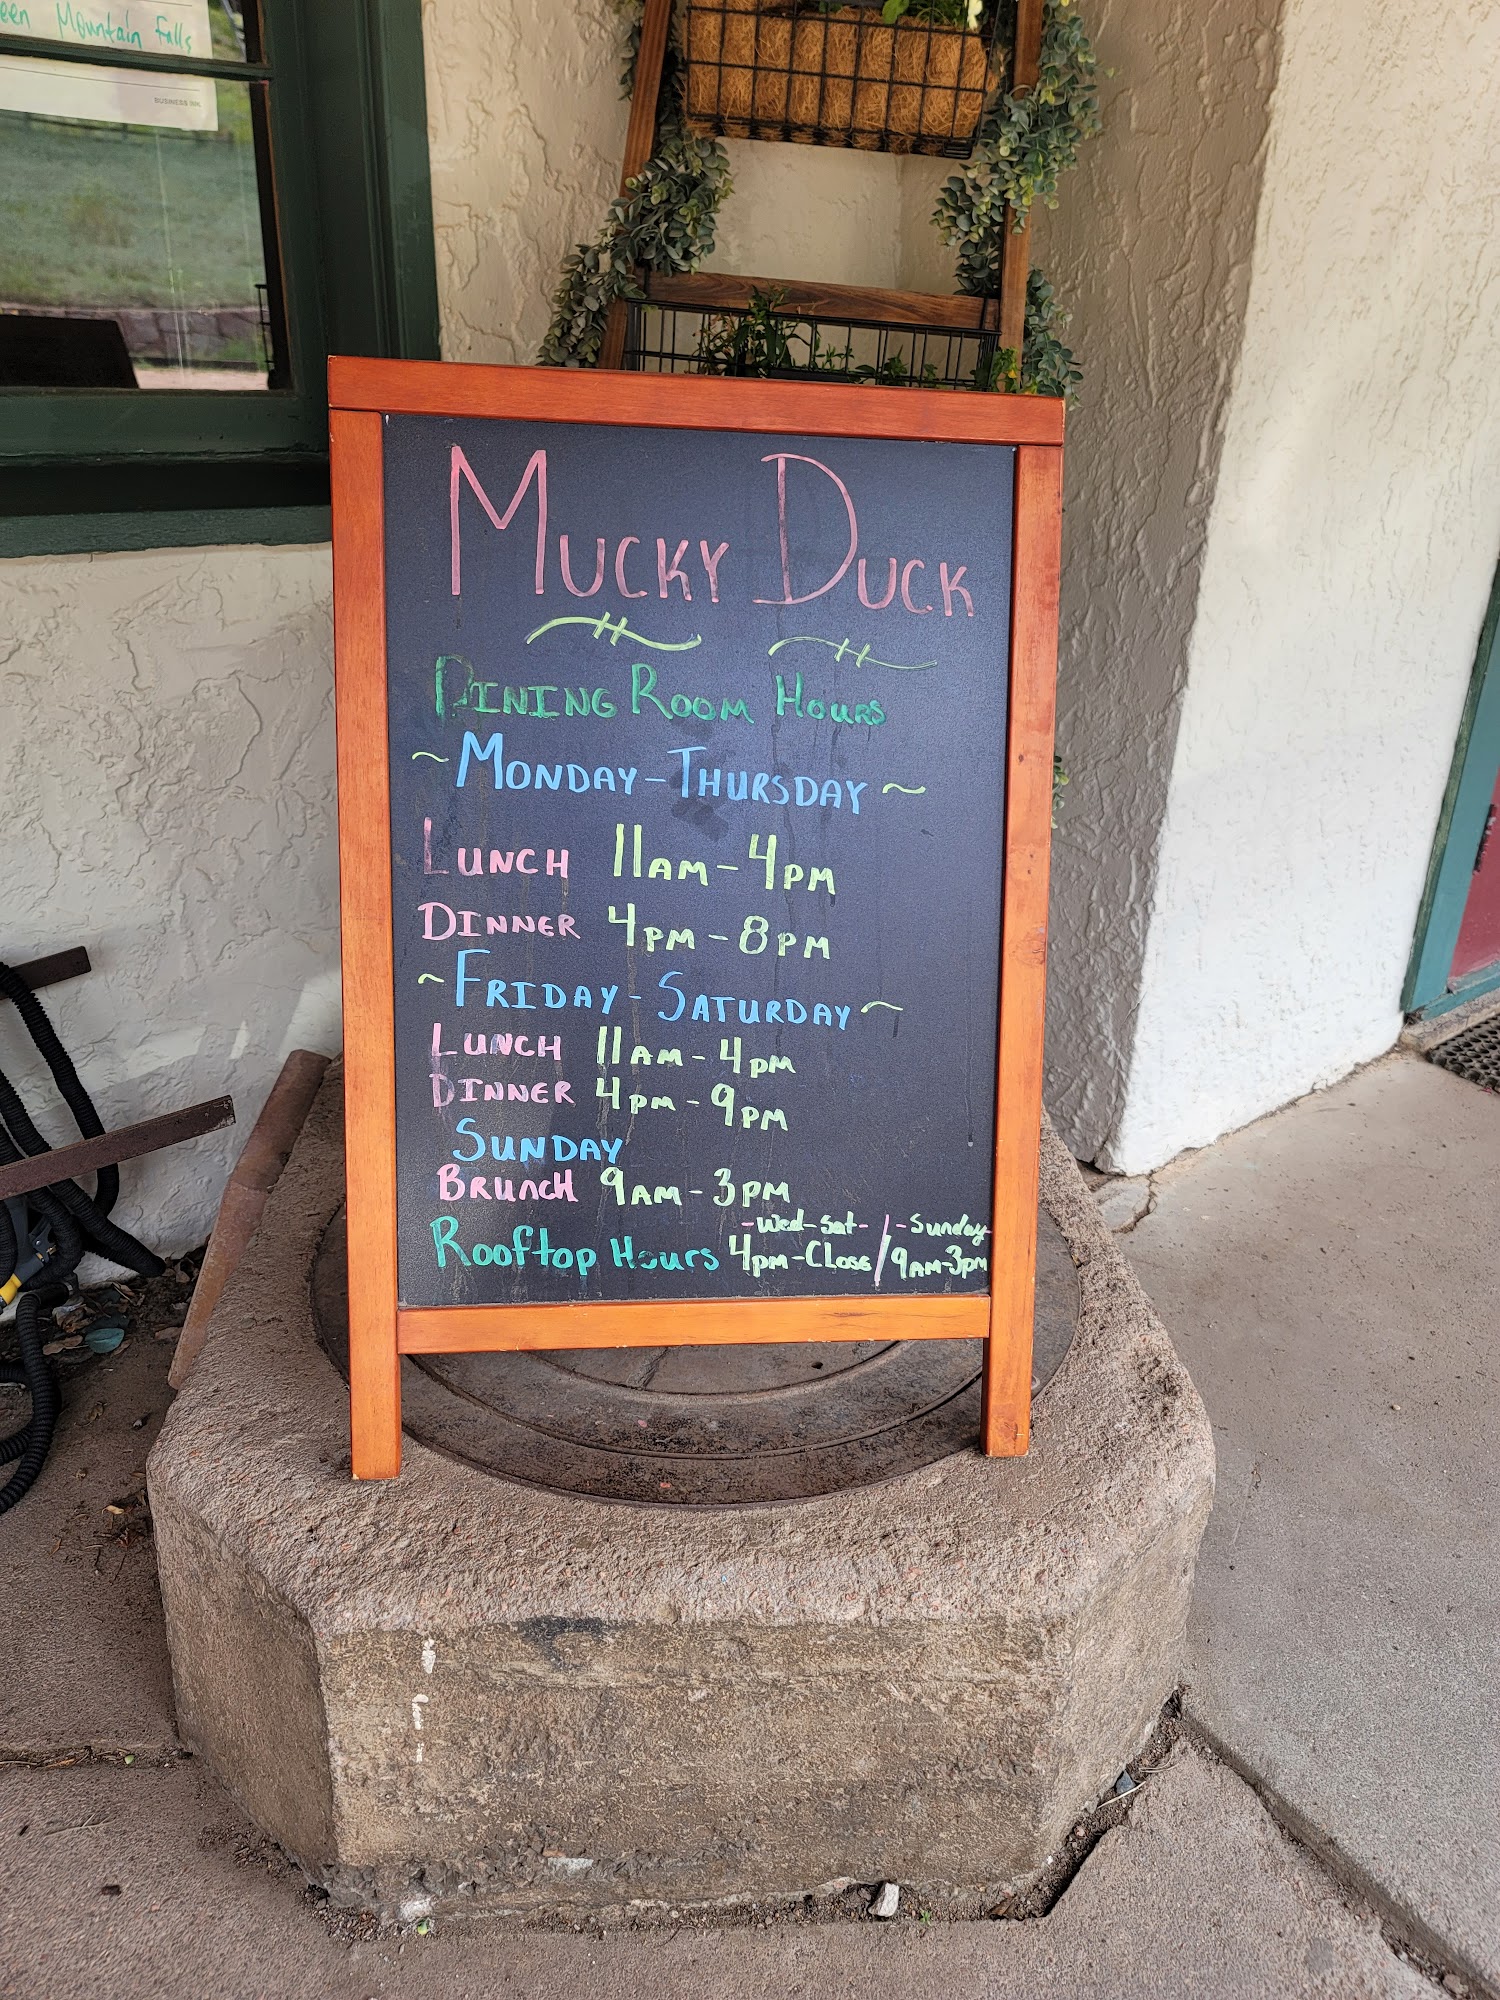 een Mountain Falls
BUSINESS
MUCKY DUCK
DINING ROOM HOURS
~ MONDAY - THURSDAY ~
LUNCH 11AM - 4PM
DINNER 4PM - 8PM
~ FRIDAY - SATURDAY ~
LUNCH 11AM - 4PM
DINNER 4PM - 9PM
SUNDAY
BRUNCH 9AM - 3PM
-Wed-Sat- / -Sunday-
Rooftop Hours 4pm-Close / 9AM-3pm